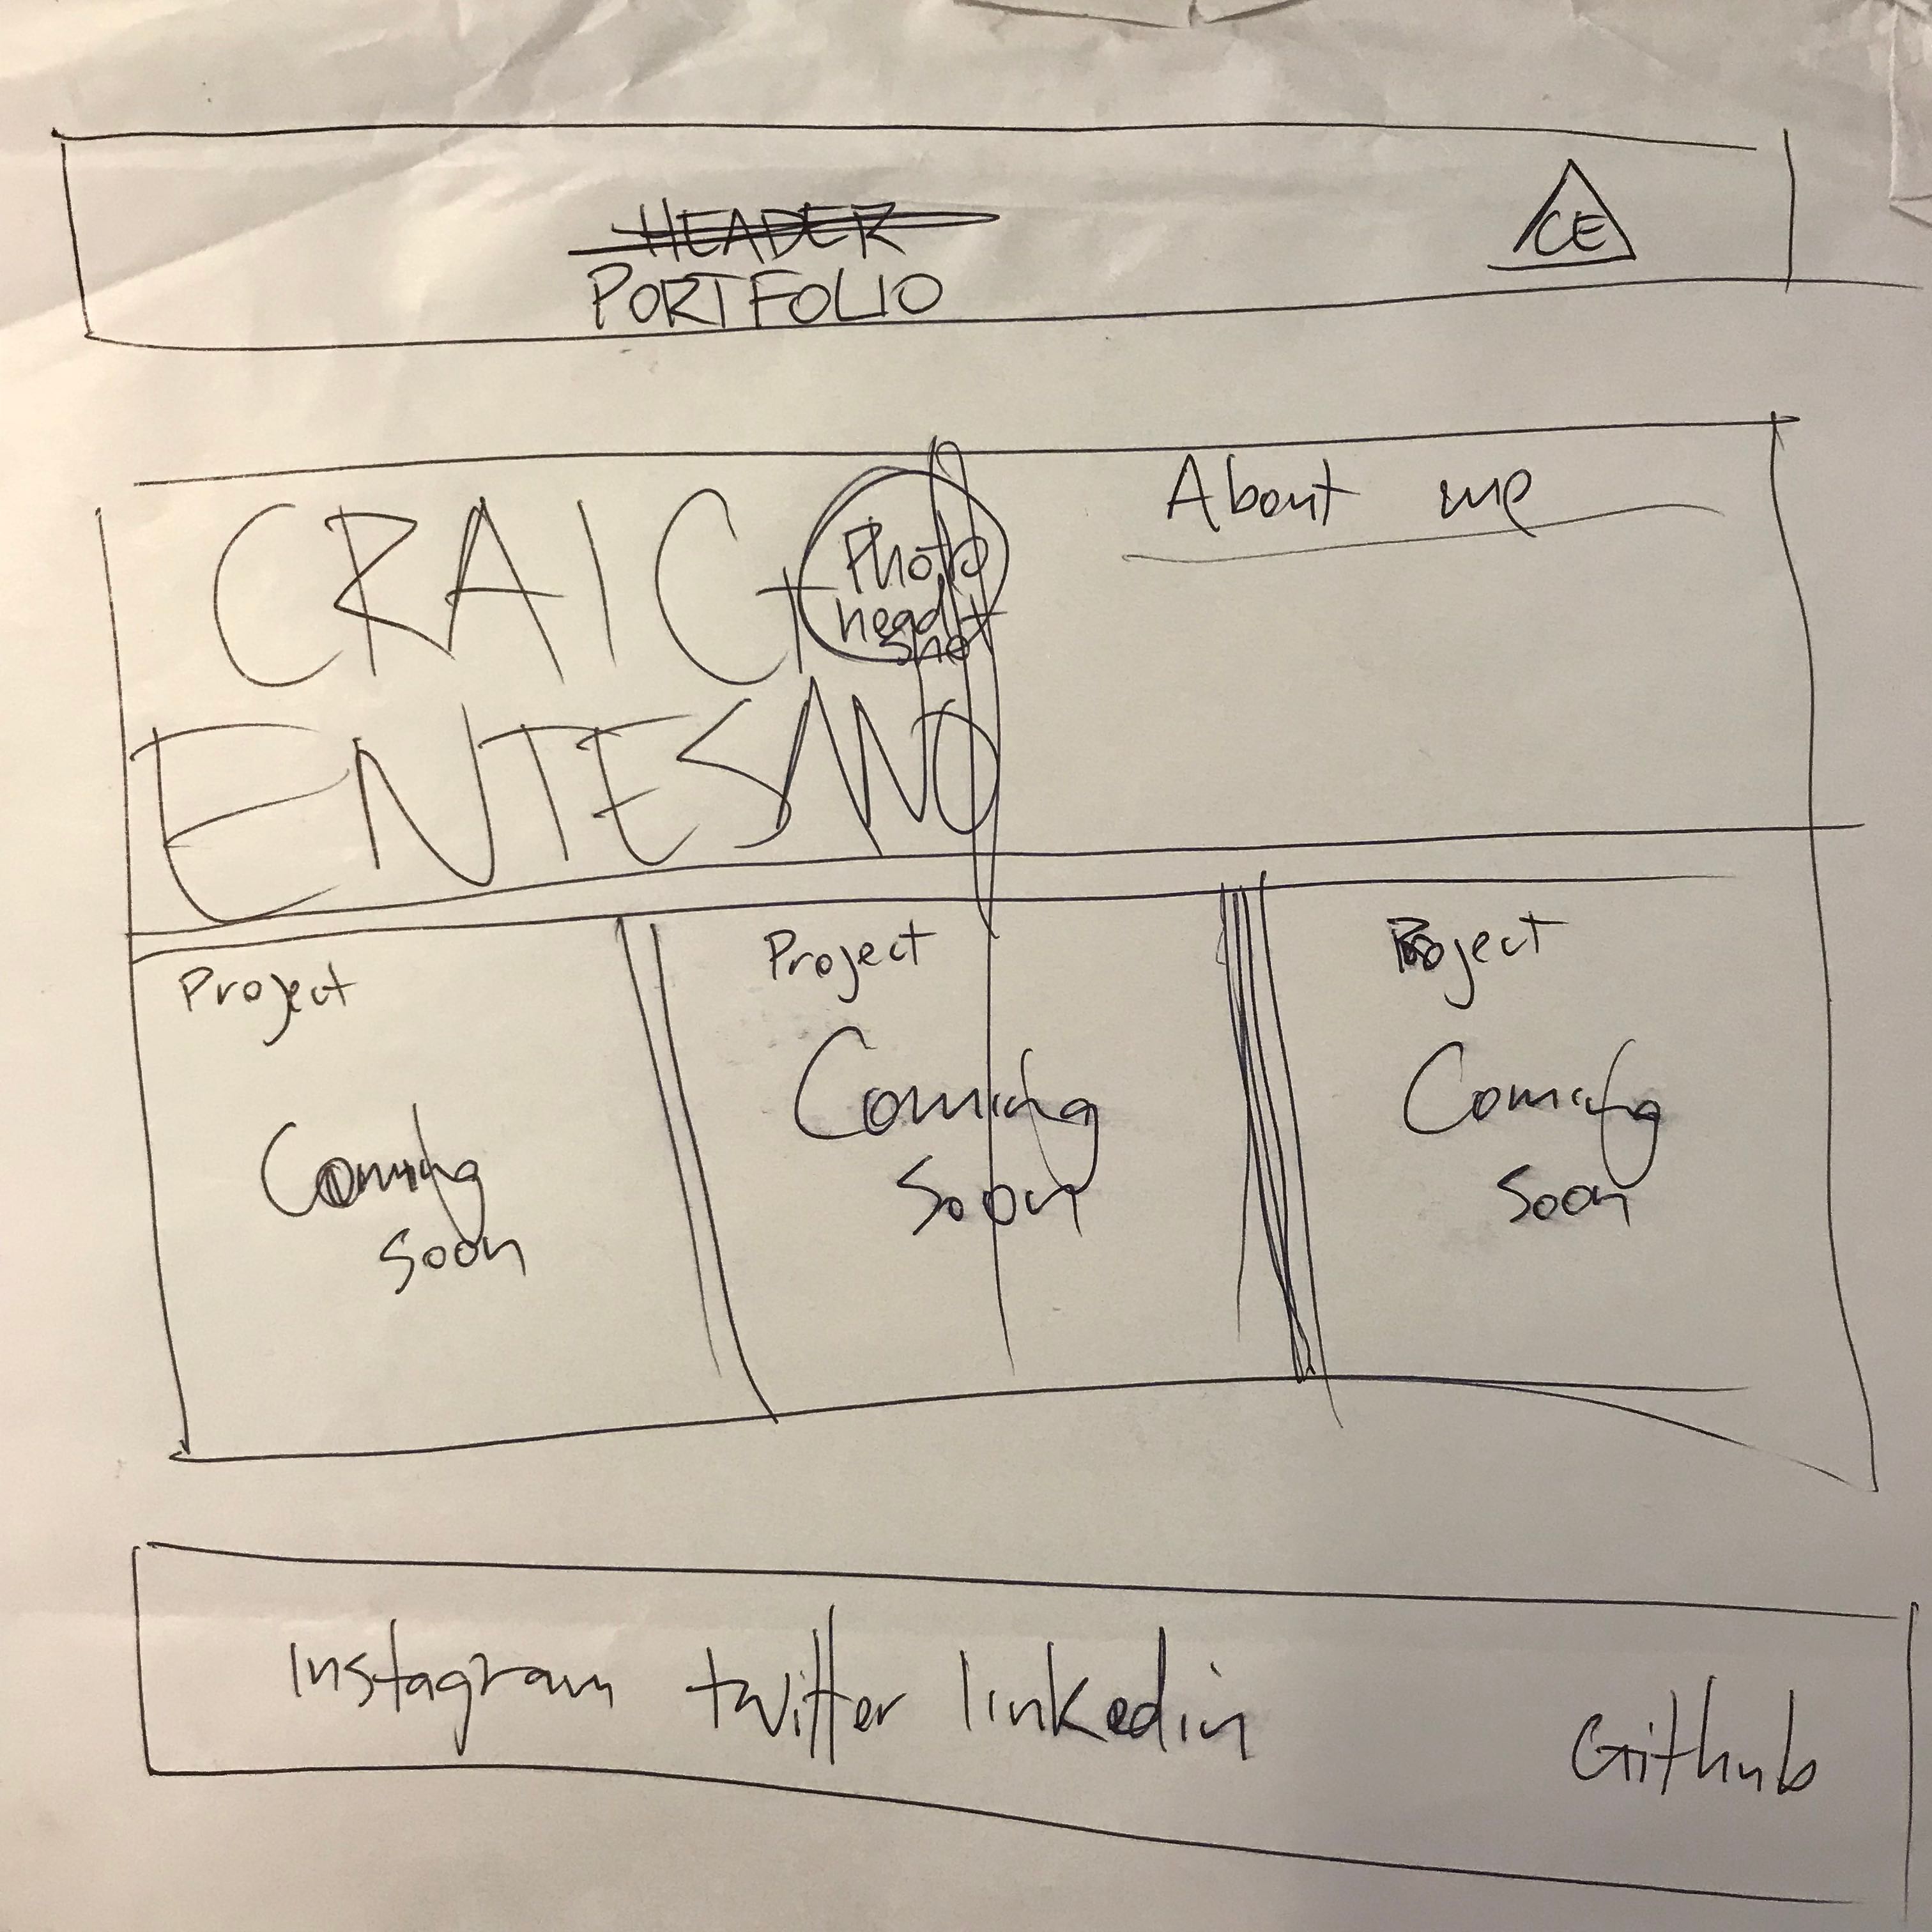 HEADER
PORTFOLIO
CE
CRAIG
Photo
head
shot
ENTESANO
About me
Project
Coming
Soon
Project
Coming
Soon
Project
Coming
Soon
Instagram twitter linkedin Github